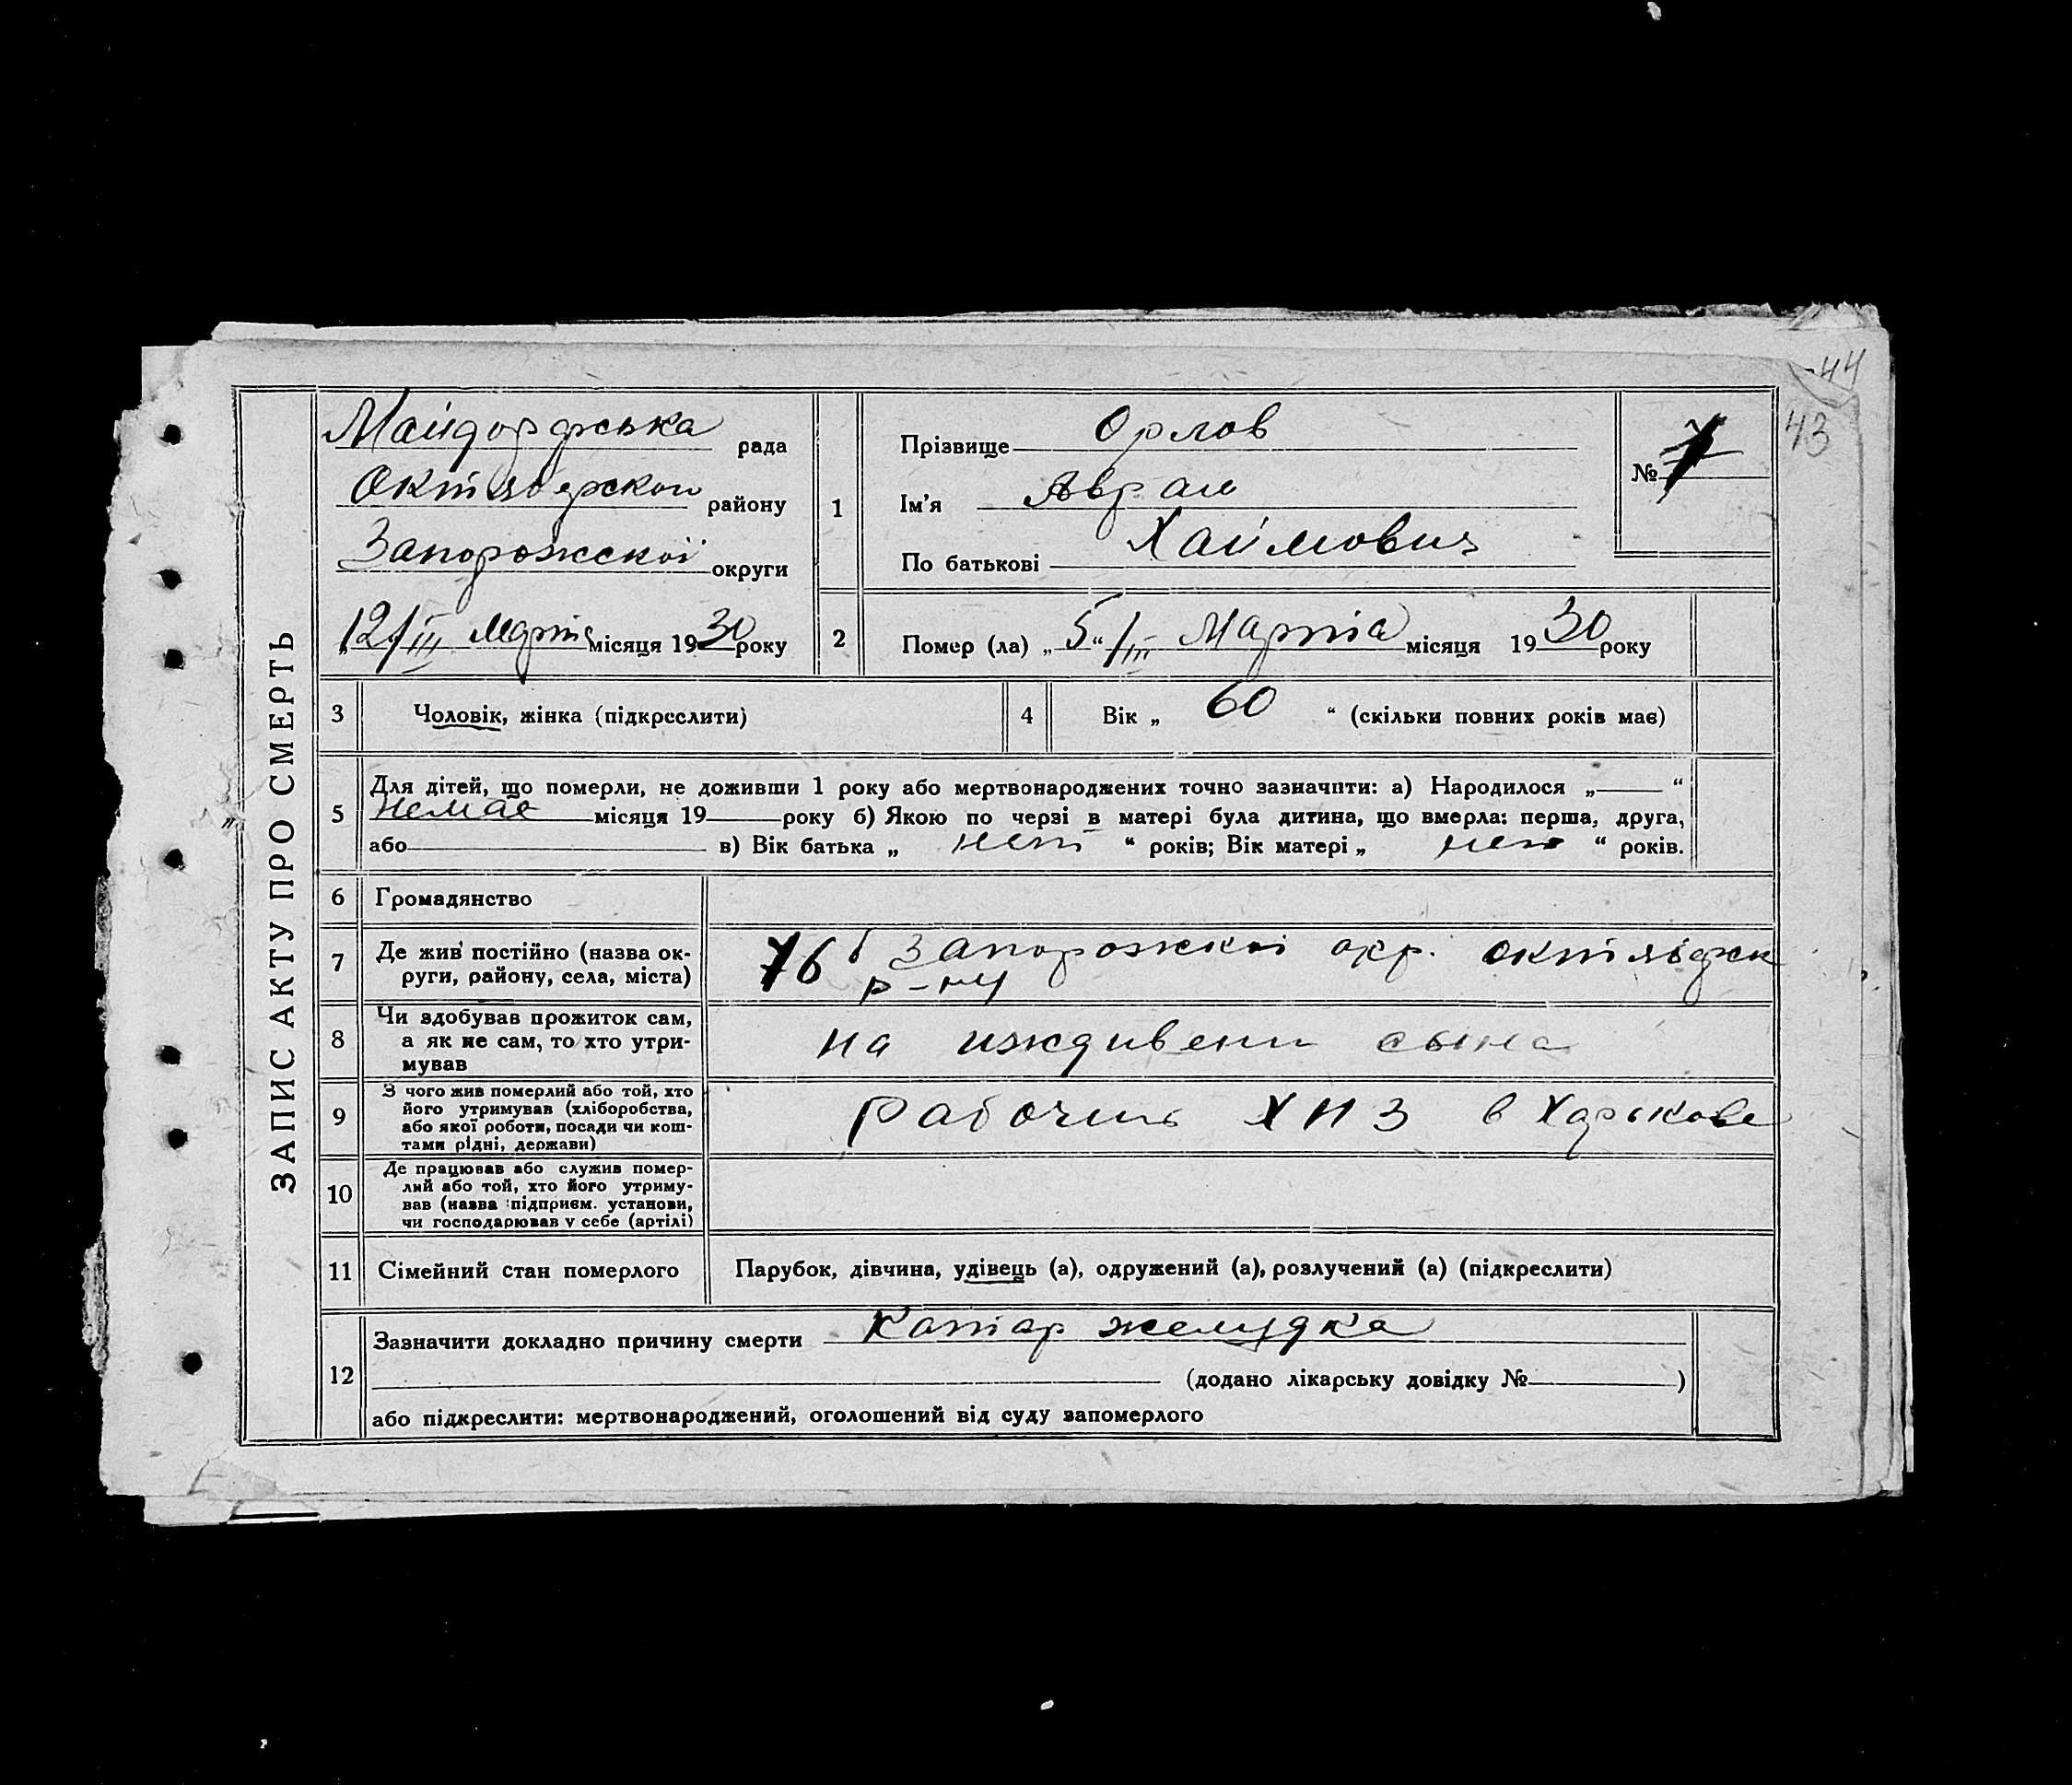 44
43
ЗАПИС АКТУ ПРО СМЕРТЬ
Майдорфська рада
Октябрской району
Запорожскої округи
„12/III Марта місяця 1930 року
1
Прізвище Орлов
Ім'я Аврам
По батькові Хаймович
№ 7
2
Помер (ла) „5“/III Марта місяця 1930 року
3
Чоловік, жінка (підкреслити)
4
Вік „ 60 “ (скільки повних років має)
5
Для дітей, що померли, не доживши 1 року або мертвонароджених точно зазначити: а) Народилося „ “
немає місяця 19 року б) Якою по черзі в матері була дитина, що вмерла: перша, друга,
або в) Вік батька „ нет “ років; Вік матері „ нет “ років.
6
Громадянство
7
Де жив постійно (назва ок-
руги, району, села, міста)
Запорожскої окр.
р-ну
8
Чи здобував прожиток сам,
а як не сам, то хто утри-
мував
на иждивени сына
9
З чого жив померлий або той, хто
його утримував (хліборобства,
або якої роботи, посади чи кош-
тами рідні, держави)
Рабочий в Харькове
10
Де працював або служив помер-
лий або той, хто його утриму-
вав (назва підприєм. установи,
чи господарював у себе (артілі)
11
Сімейний стан померлого
Парубок, дівчина, удівець (а), одружений (а), розлучений (а) (підкреслити)
12
Зазначити докладно причину смерти Катар желудка
(додано лікарську довідку № )
або підкреслити: мертвонароджений, оголошений від суду запомерлого